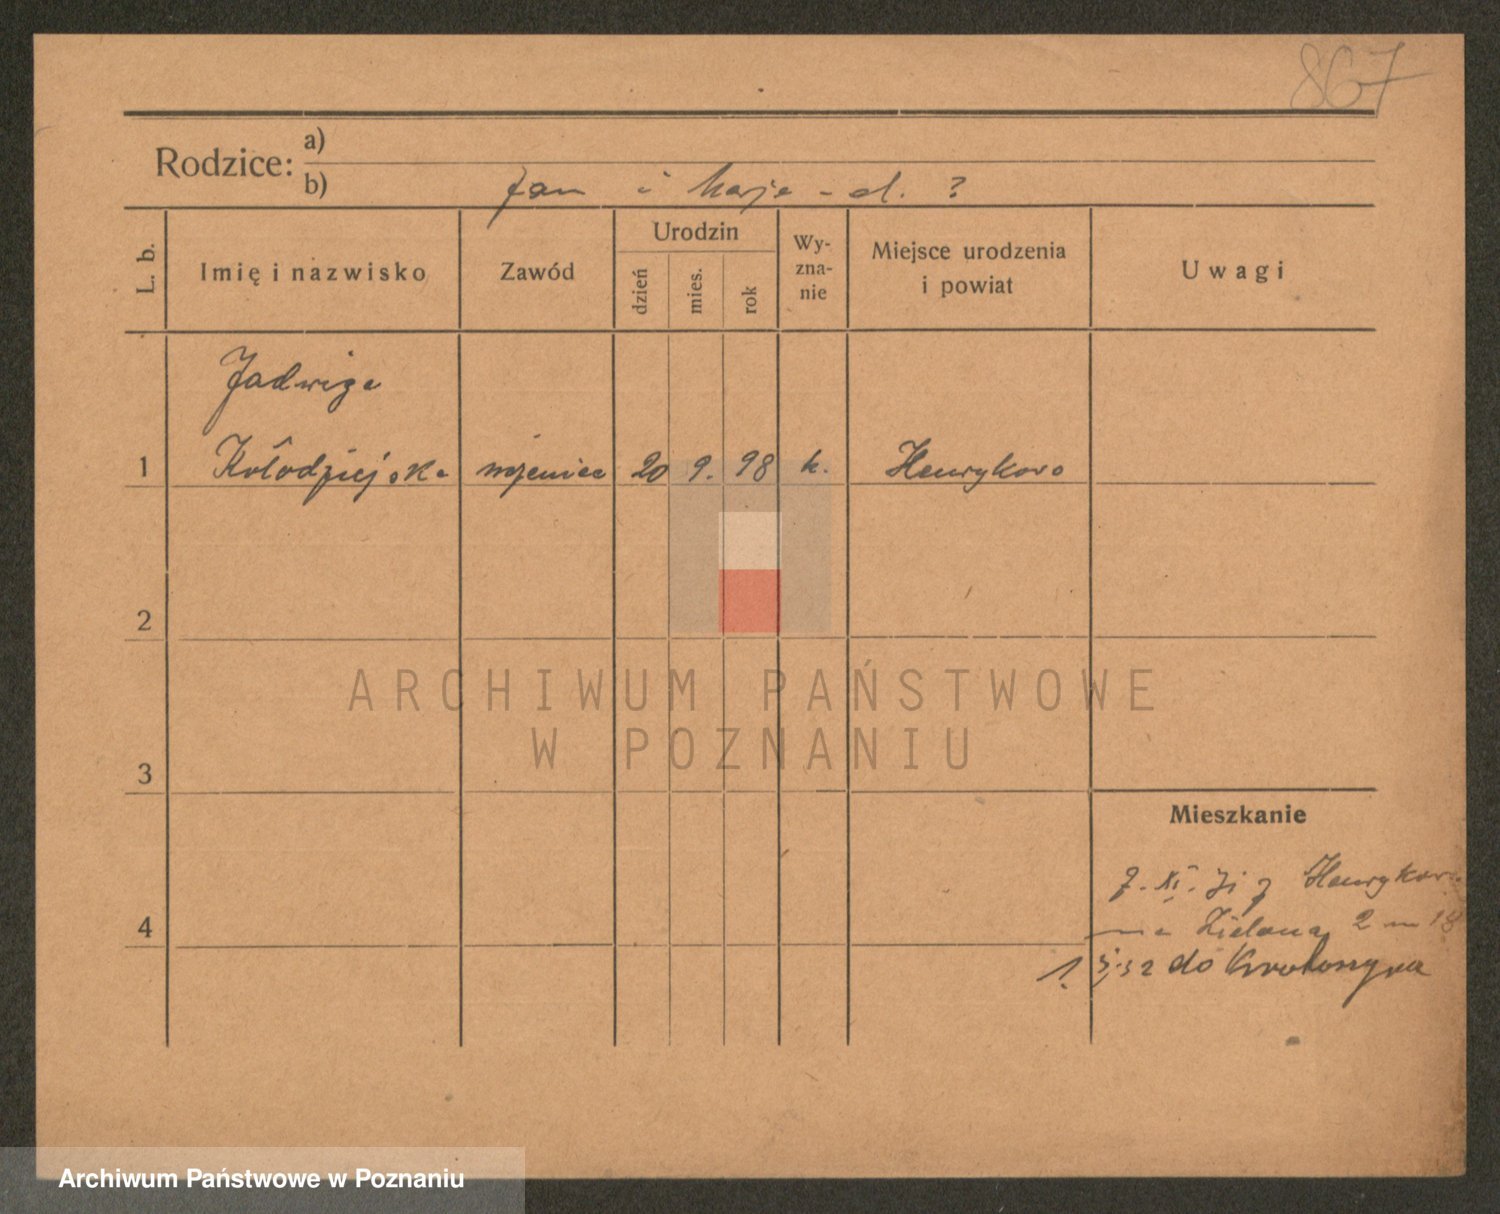 867
Rodzice: a)
b) Jan i Marja - d. ?
L. b. Imię i nazwisko Zawód Urodzin dzień mies. rok Wy-zna-nie Miejsce urodzenia i powiat Uwagi
Jadwiga
1 Kołodziejska 20 9. 98 k. Henrykowo
2
ARCHIWUM PAŃSTWOWE
W POZNANIU
3
Mieszkanie
7. XI. 31 z Henrykowa
4 na Zieloną 2 m 18
1. 3.32 do Krotoszyna
Archiwum Państwowe w Poznaniu